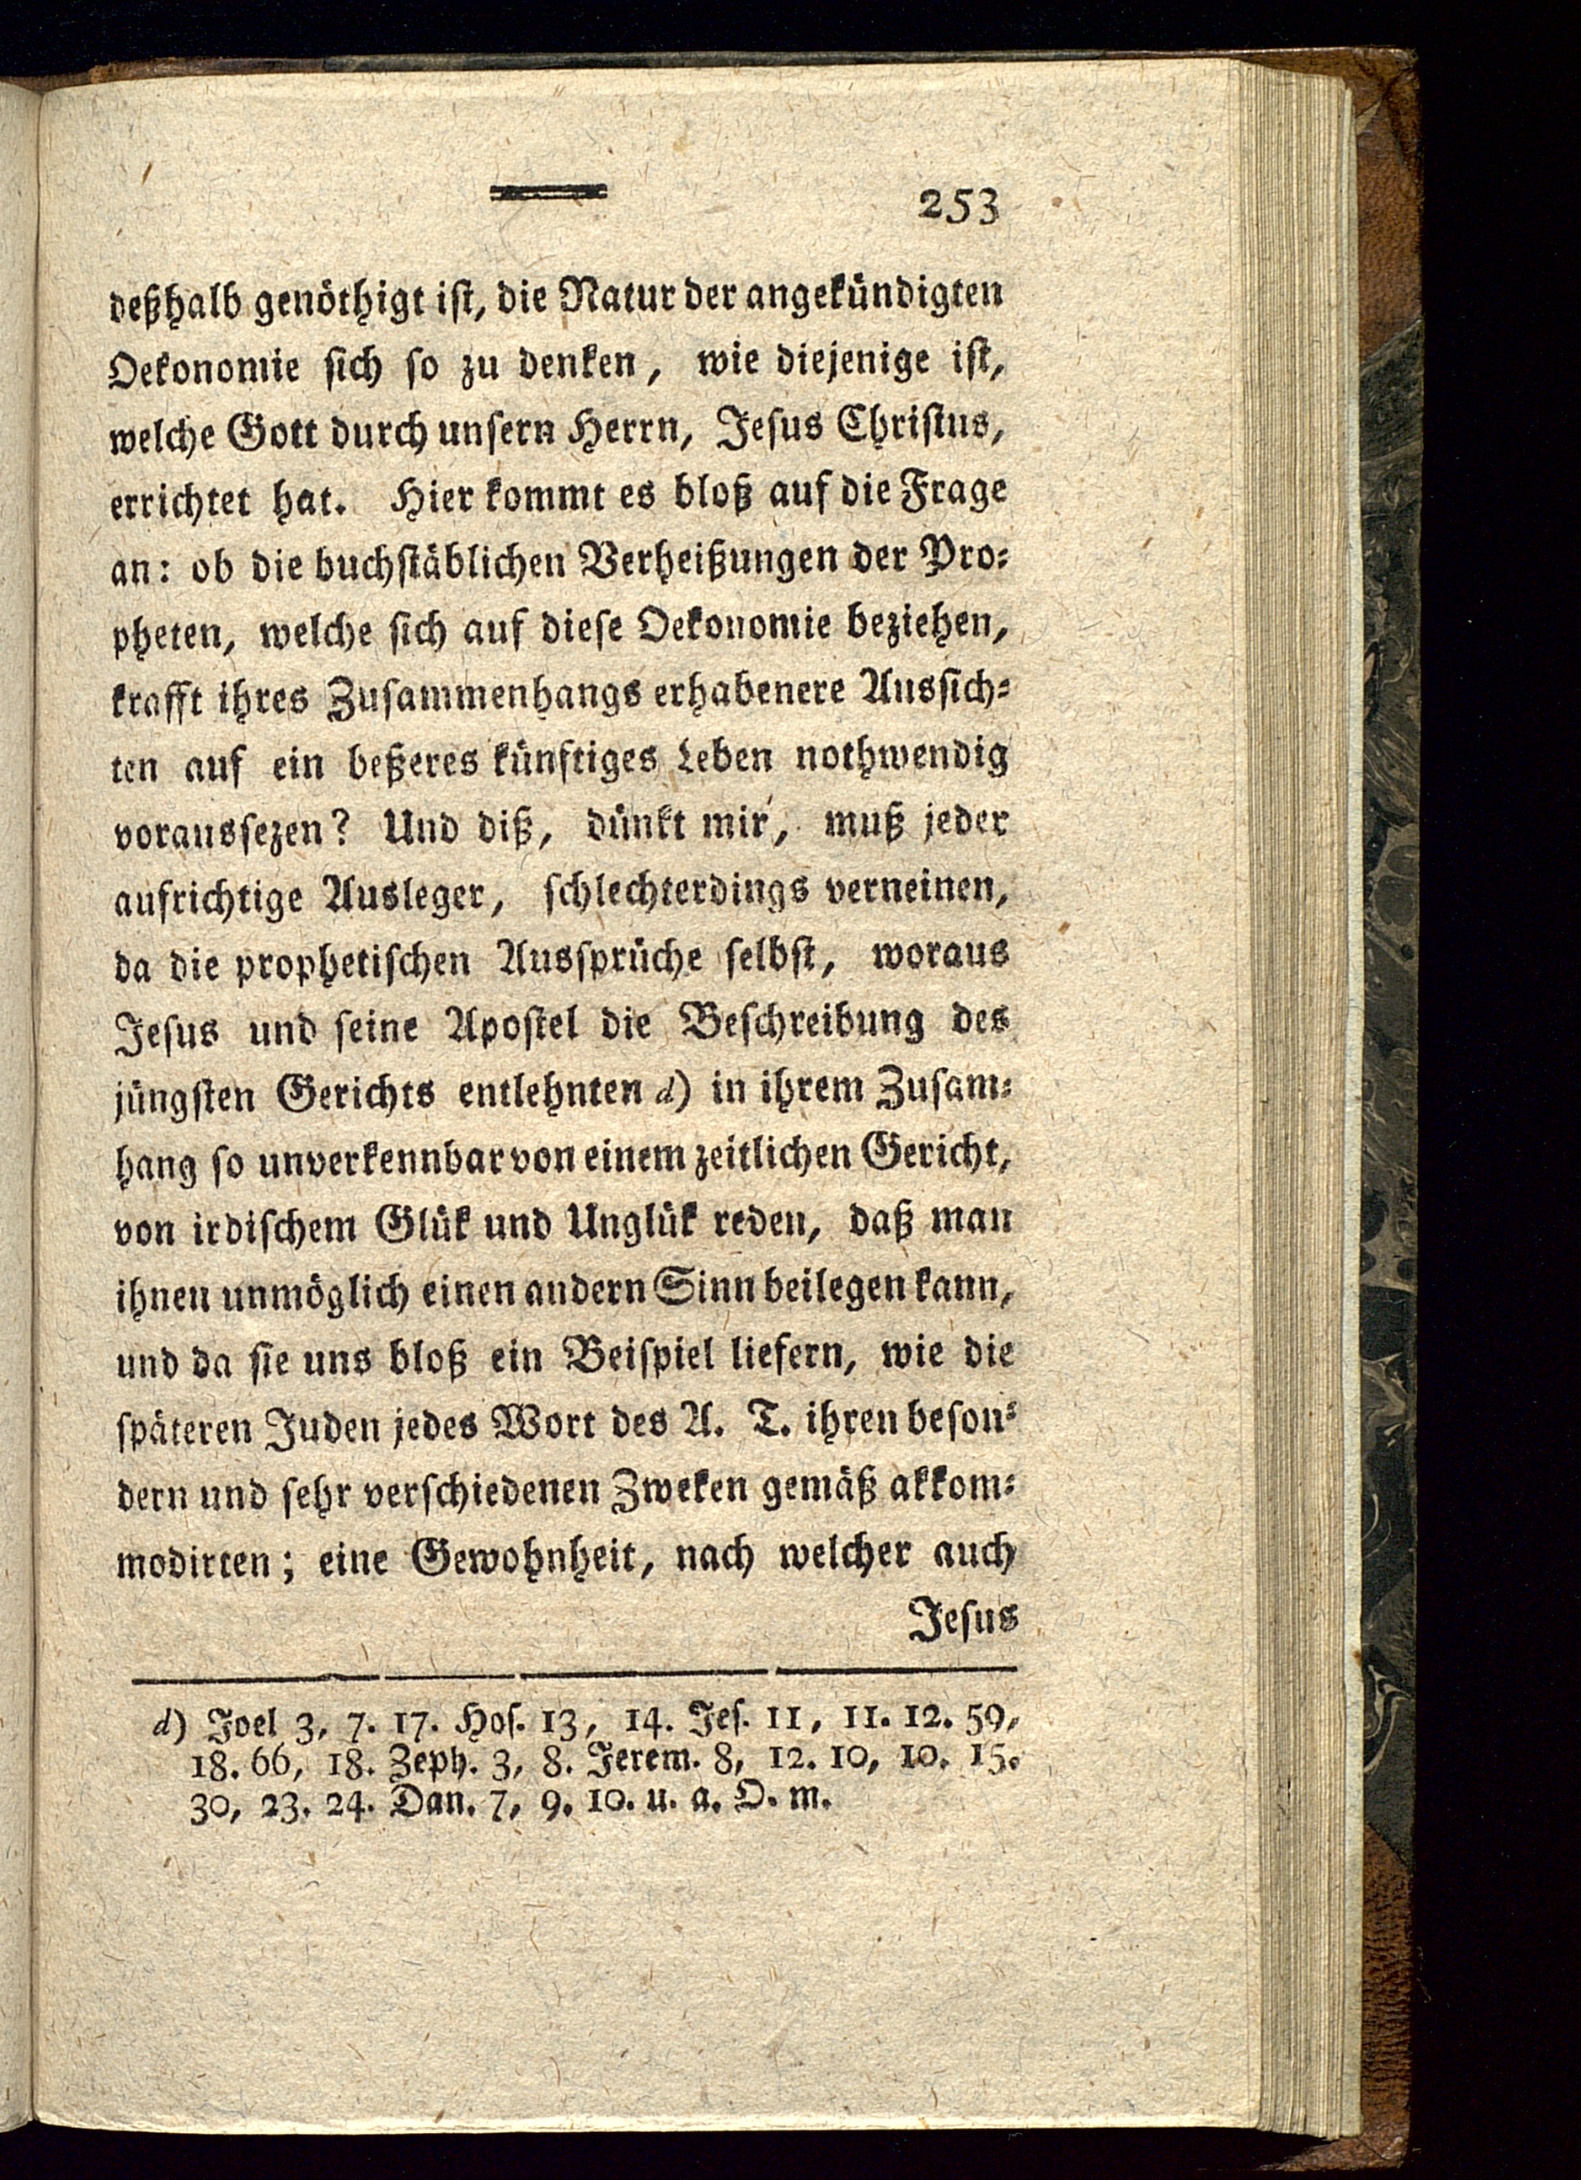 253
deßhalb genöthigt ist, die Natur der angekündigten
Oekonomie sich so zu denken, wie diejenige ist,
welche Gott durch unsern Herrn, Jesus Christus,
errichtet hat. Hier kommt es bloß auf die Frage
an: ob die buchstäblichen Verheißungen der Pro-
pheten, welche sich auf diese Oekonomie beziehen,
krafft ihres Zusammenhangs erhabenere Aussich-
ten auf ein beßeres künftiges Leben nothwendig
voraussezen? Und diß, dünkt mir, muß jeder
aufrichtige Ausleger, schlechterdings verneinen,
da die prophetischen Aussprüche selbst, woraus
Jesus und seine Apostel die Beschreibung des
jüngsten Gerichts entlehnten d) in ihrem Zusam-
hang so unverkennbar von einem zeitlichen Gericht,
von irdischem Glük und Unglük reden, daß man
ihnen unmöglich einen andern Sinn beilegen kann,
und da sie uns bloß ein Beispiel liefern, wie die
späteren Juden jedes Wort des A. T. ihren beson-
dern und sehr verschiedenen Zweken gemäß akkom-
modirten; eine Gewohnheit, nach welcher auch
Jesus
d) Joel 3, 7. 17. Hos. 13, 14. Jes. 11, 11. 12. 59,
18. 66, 18. Zeph. 3, 8. Jerem. 8, 12. 10, 10. 15.
30, 23. 24. Dan. 7, 9. 10. u. a. O. m.